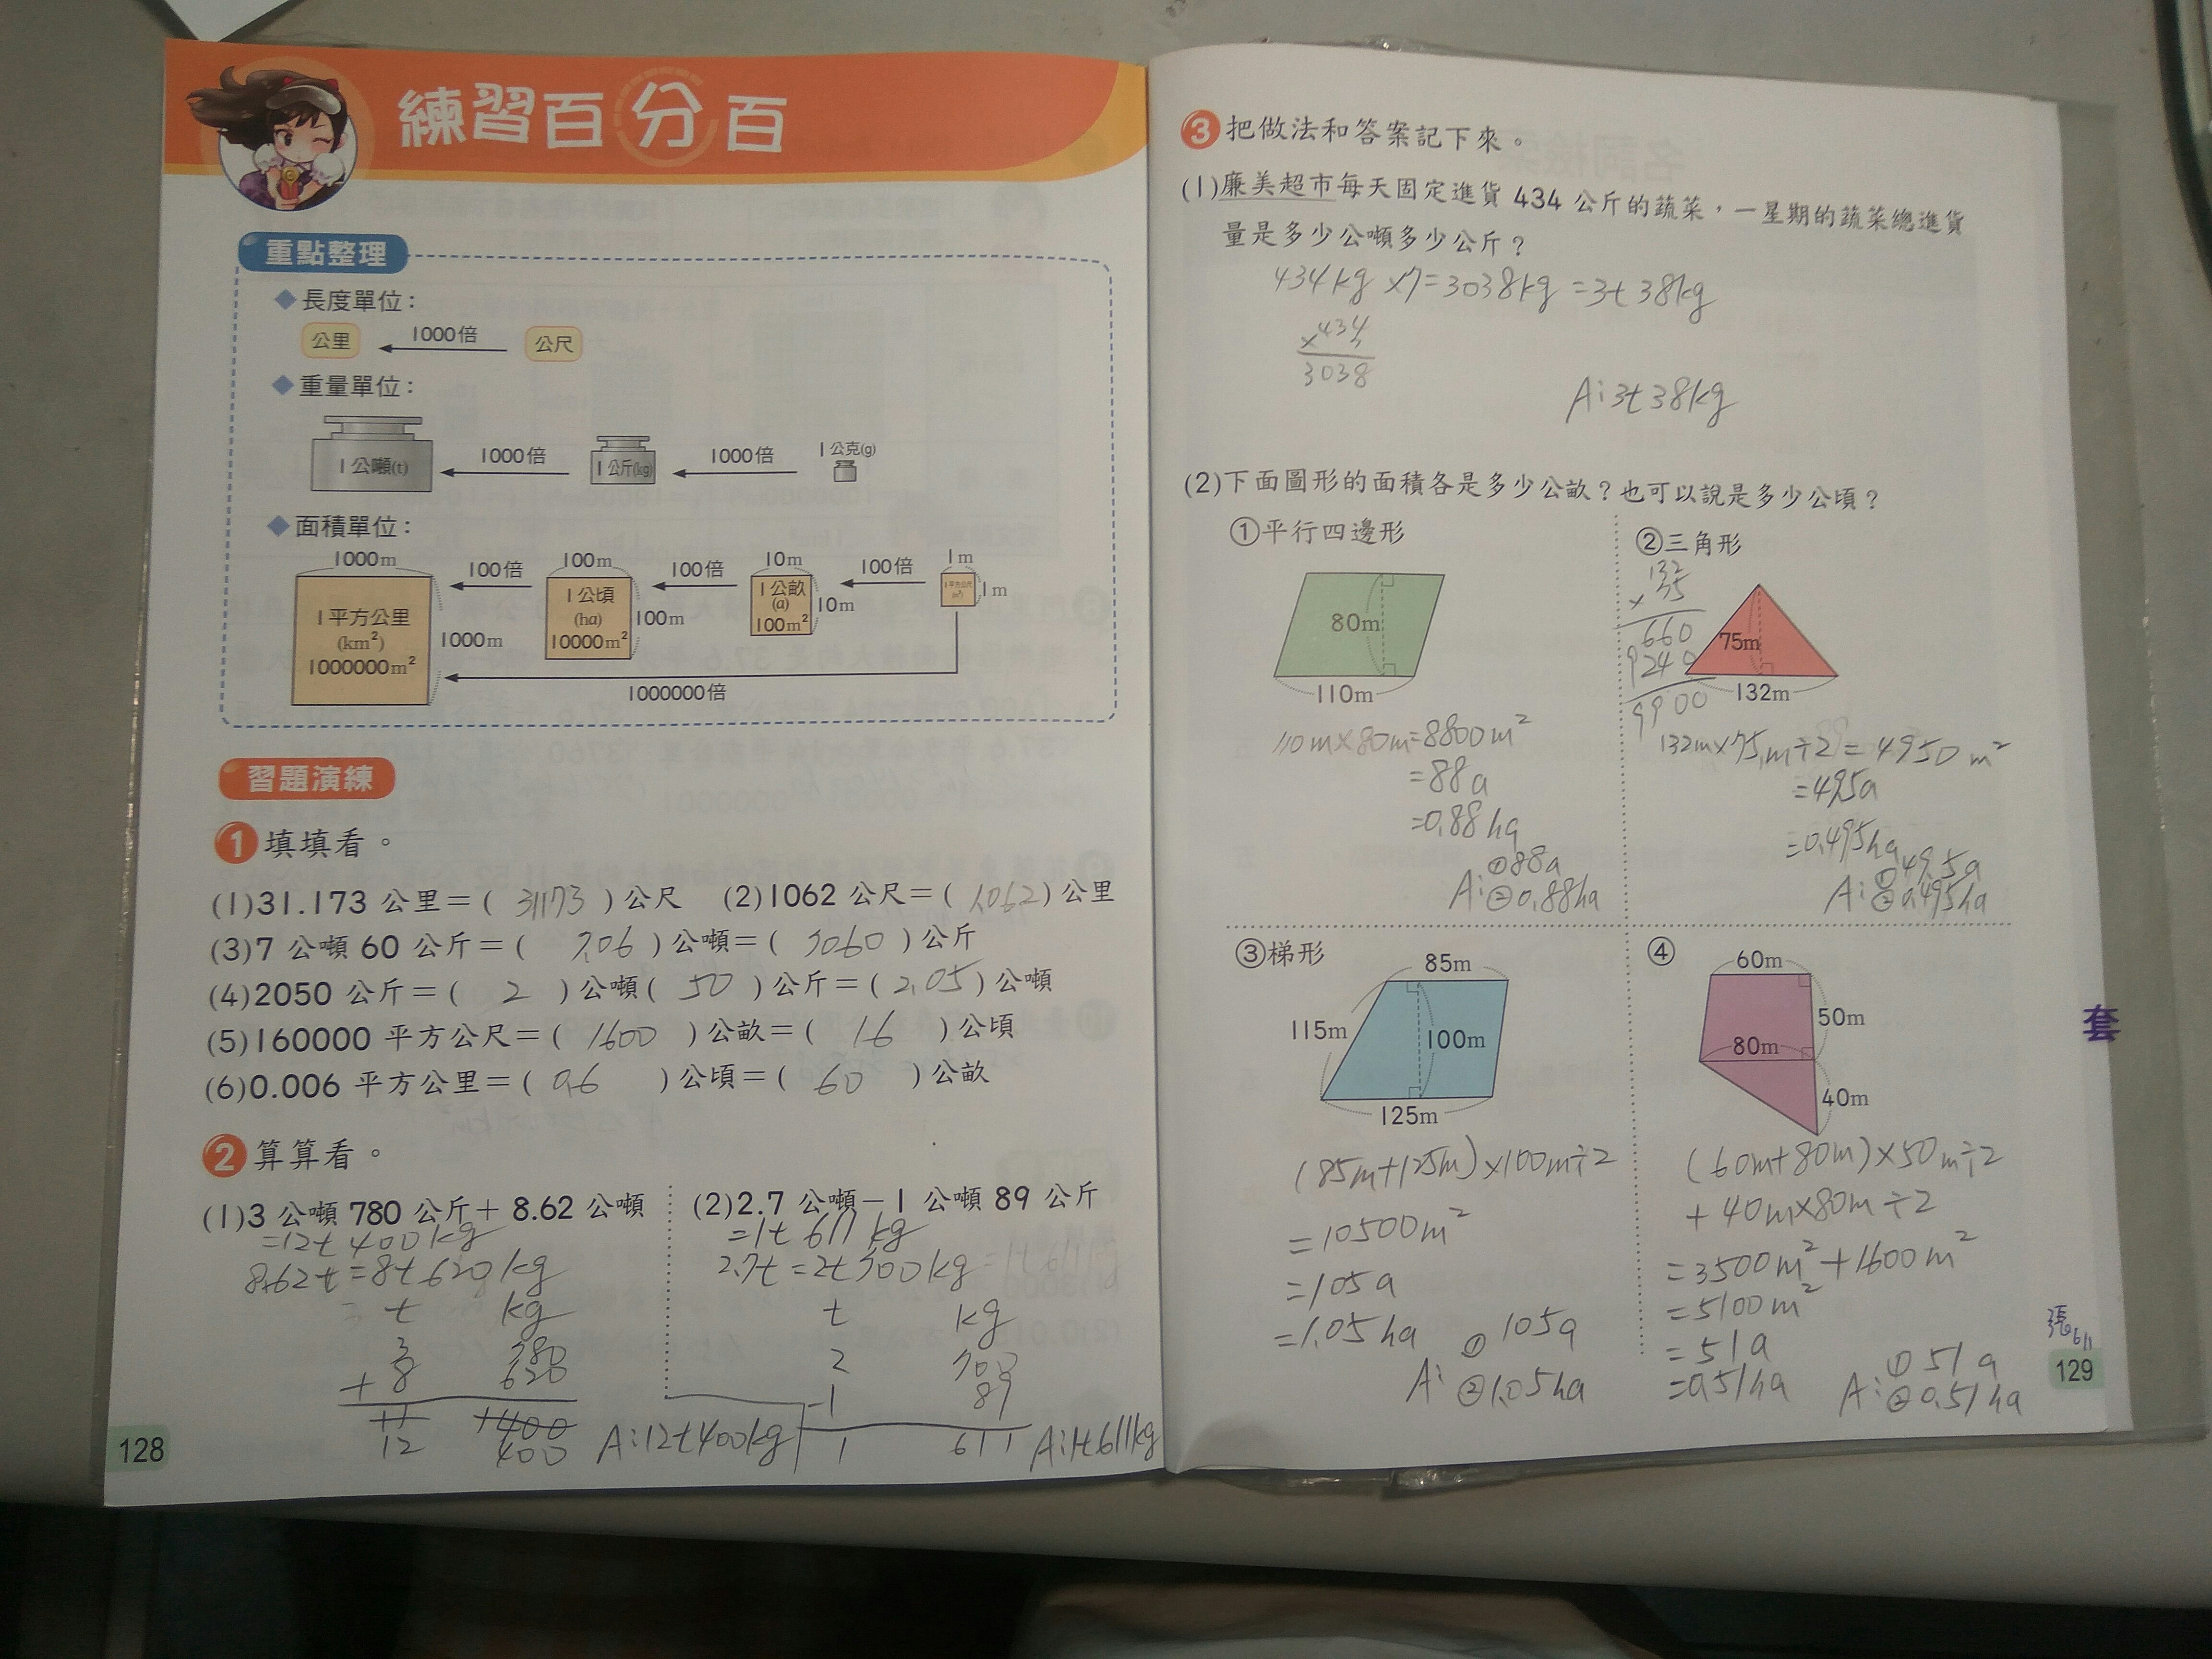 練習百分百
重點整理
◆長度單位:
公里 1000倍 公尺
◆重量單位:
1公噸(t) 1000倍 1公斤(kg) 1000倍 1公克(g)
◆面積單位:
1000m 100倍 100m 100倍 10m 100倍 1m
1平方公里 (km²) 1000000m² 1000m
1公頃 (ha) 10000m² 100m
1公畝 (a) 100m² 10m
1m
1000000倍
習題演練
1 填填看。
(1)31.173 公里=( 31173 )公尺 (2)1062 公尺=( 1.062 )公里
(3)7 公噸 60 公斤=( 7.06 )公噸=( 7060 )公斤
(4)2050 公斤=( 2 )公噸( 50 )公斤=( 2.05 )公噸
(5)160000 平方公尺=( 1600 )公畝=( 16 )公頃
(6)0.006 平方公里=( 0.6 )公頃=( 60 )公畝
2 算算看。
(1)3 公噸 780 公斤+ 8.62 公噸
=12t 400kg
8.62t=8t 620kg
t kg
3 780
+ 8 620
11 1400
12 400
A:12t400kg
(2)2.7 公噸-1 公噸 89 公斤
=1t 611 kg
2.7t=2t 700kg
t kg
2 700
-1 89
1 611
A:1t611kg
128
3 把做法和答案記下來。
(1)廉美超市每天固定進貨 434 公斤的蔬菜,一星期的蔬菜總進貨
量是多少公噸多少公斤?
434kg ×7=3038kg=3t 38kg
434
× 7
3038
A:3t38kg
(2)下面圖形的面積各是多少公畝?也可以說是多少公頃?
①平行四邊形
80m
110m
110m×80m=8800m²
=88a
=0.88ha
①88a
A:②0.88ha
②三角形
132
× 75
660
9240
9900
75m
132m
132m×75m÷2=4950m²
=49.5a
=0.495ha
①49.5a
A:②0.495ha
③梯形
85m
115m
100m
125m
(85m+125m)×100m÷2
=10500m²
=105a
=1.05ha
①105a
A:②1.05ha
④
60m
50m
80m
40m
(60m+80m)×50m÷2
+40m×80m÷2
=3500m²+1600m²
=5100m²
=51a
=0.51ha
①51a
A:②0.51ha
套
張6/11
129